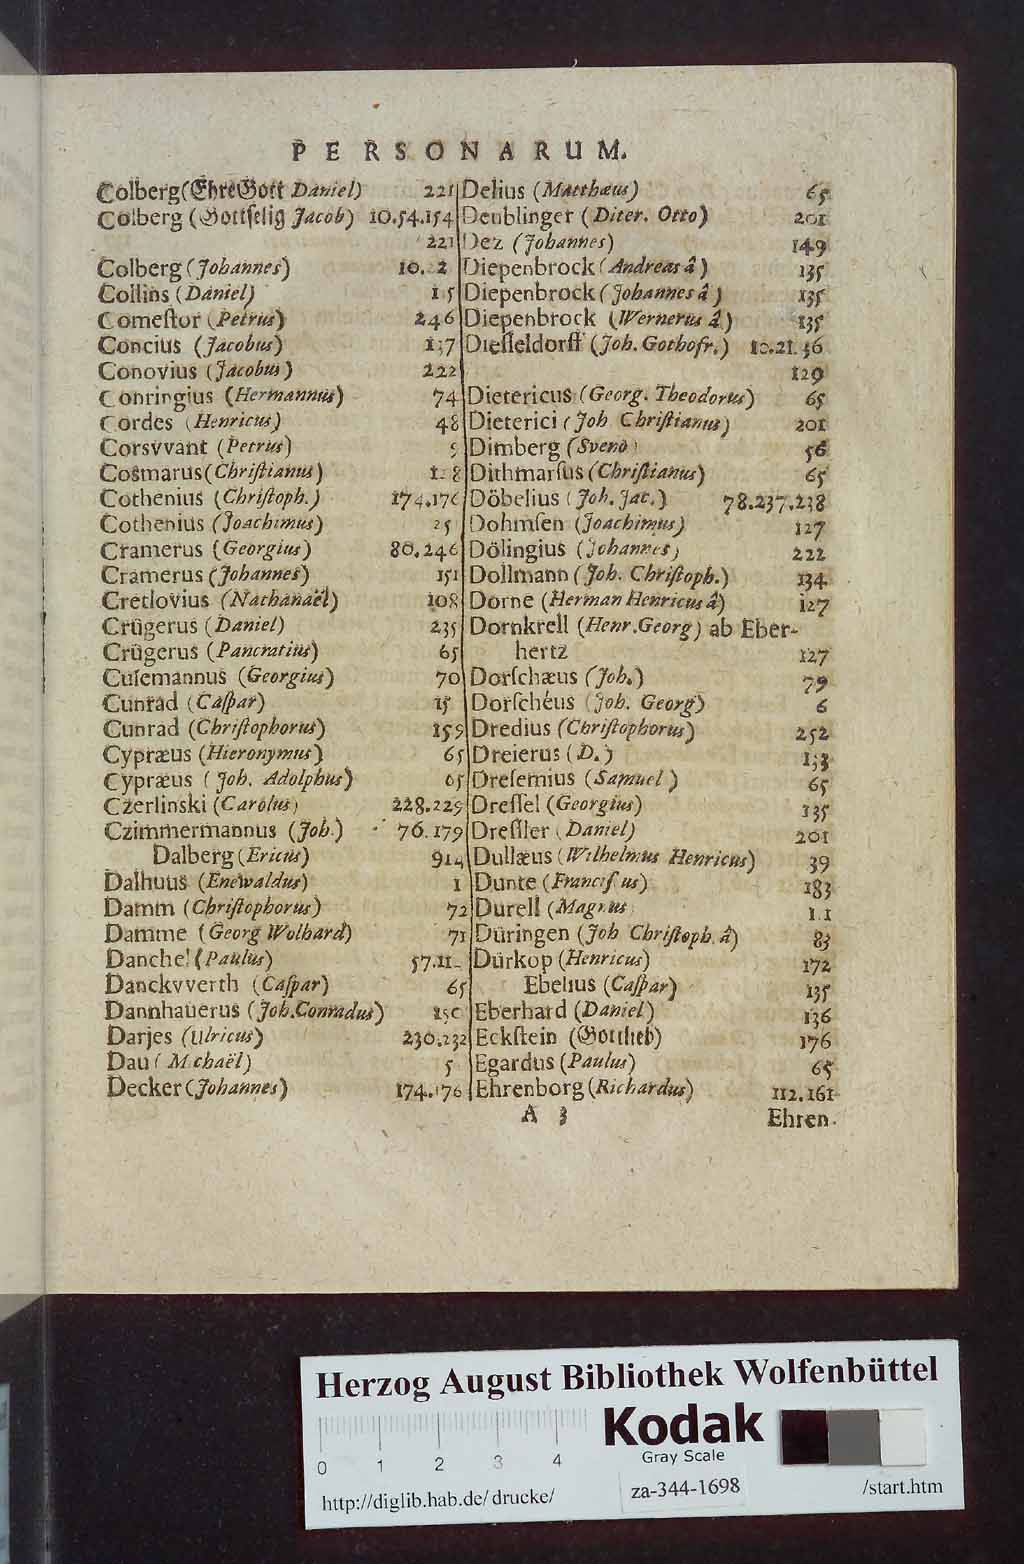 PERSONARUM.
Colberg (EhreGott Daniel) 221
Colberg (Gottſelig Jacob) 10.54.154
221
Colberg (Johannes)
Collins (Daniel) 15
Comeſtor (Petrus) 246
Concius (Jacobus) 137
Conovius (Jacobus) 222
Conringius (Hermannus) 74
Cordes (Henricus) 48
Corsvvant (Petrus) 5
Cosmarus (Chriſtianus)
Cothenius (Chriſtoph.) 174.176
Cothenius (Joachimus) 25
Cramerus (Georgius) 80.246
Cramerus (Johannes) 151
Cretlovius (Nathanaël) 108
Crügerus (Daniel) 235
Crügerus (Pancratius) 65
Cuſemannus (Georgius) 70
Cunrad (Caſpar) 15
Cunrad (Chriſtophorus) 159
Cypræus (Hieronymus) 65
Cypræus (Joh. Adolphus) 65
Czerlinski (Carolus) 228.229
Czimmermannus (Joh.) 76.179
Dalberg (Ericus) 914
Dalhuus (Enewaldus) 1
Damm (Chriſtophorus) 72
Damme (Georg Wolhard) 71
Danchel (Paulus)
Danckvverth (Caſpar) 65
Dannhauerus (Joh. Conradus) 250
Darjes (Ulricus) 230.232
Dau (Michaël) 5
Decker (Johannes) 174.176
Delius (Matthæus) 65
Deublinger (Diter. Otto) 201
Dez (Johannes) 149
Diepenbrock (Andreas â) 135
Diepenbrock (Johannes â) 135
Diepenbrock (Wernerus â) 135
Dieſſeldorff (Joh. Gothofr.) 10.21.36
129
Dietericus (Georg. Theodorus) 65
Dieterici (Joh Chriſtianus) 201
Dimberg (Sveno) 56
Dithmarſus (Chriſtianus) 65
Döbelius (Joh. Jac.) 78.237.238
Dohmſen (Joachimus) 127
Dölingius (Johannes) 222
Dollmann (Joh. Chriſtoph.) 134
Dorne (Herman Henricus â) 127
Dornkrell (Henr. Georg) ab Eber-
hertz 127
Dorſchæus (Joh.) 79
Dorſchéus (Joh. Georg) 6
Dredius (Chriſtophorus) 252
Dreierus (D.) 133
Dreſemius (Samuel) 65
Dreſſel (Georgius) 135
Dreſſler (Daniel) 201
Dullæus (Wilhelmus Henricus) 39
Dunte (Franciſcus) 183
Durell (Magnus)
Düringen (Joh Chriſtoph. â) 83
Dürkop (Henricus) 172
Ebelius (Caſpar) 135
Eberhard (Daniel) 136
Eckſtein (Gottlieb) 176
Egardus (Paulus) 65
Ehrenborg (Richardus) 112.161
A 3 Ehren-
Herzog August Bibliothek Wolfenbüttel
Kodak
Gray Scale
0 1 2 3 4
http://diglib.hab.de/drucke/ za-344-1698 /start.htm